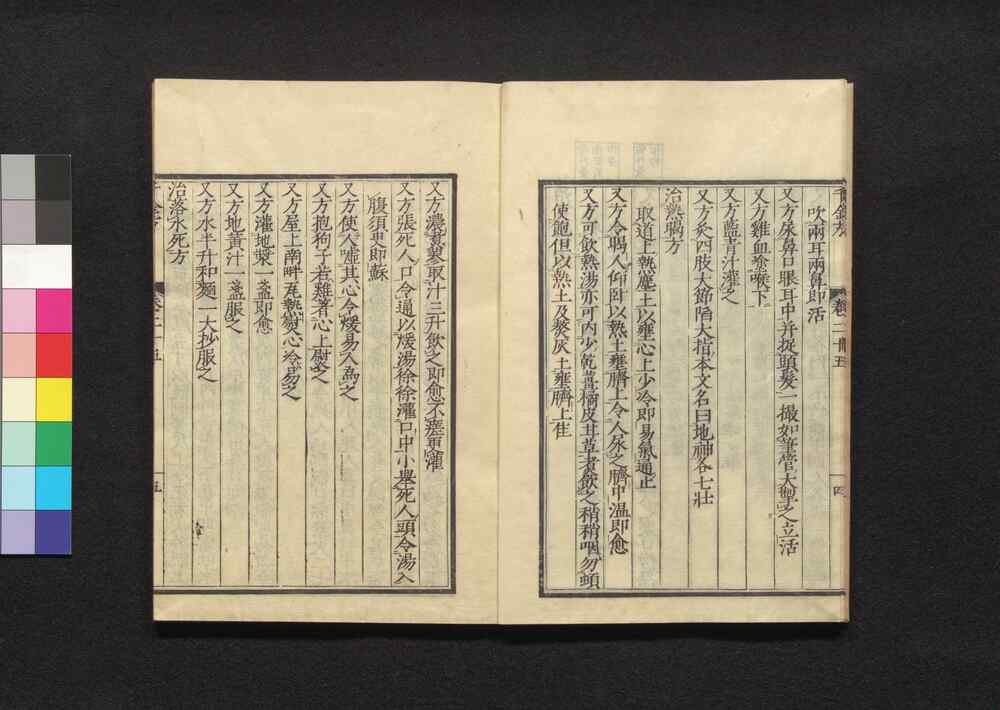 千金方 卷二十五 四
吹兩耳兩鼻即活
又方尿鼻口眼耳中并捉頭髮一撮如筆管大掣之立活
又方雞血塗喉下
又方藍青汁灌之
又方灸四肢大節陷大指本文名曰地神各七壯
治熱暍方
取道上熱塵土以壅心上少冷即易氣通止
又方令暍人仰臥以熱土壅臍上令人尿之臍中温即愈
又方可飲熱湯亦可内少乾薑橘皮甘草煮飲之稍稍咽勿頓
使飽但以熱土及熬灰土壅臍上佳
又方濃煮蓼取汁三升飲之即愈不瘥更灌
又方張死人口令通以煖湯徐徐灌口中小舉死人頭令湯入
腹須臾即蘇
又方使人噓其心令煖易人為之
又方抱狗子若雞著心上熨之
又方屋上南畔瓦熱熨心冷易之
又方灌地漿一盞即愈
又方地黃汁一盞服之
又方水半升和麵一大抄服之
治落水死方
千金方 卷二十五 五